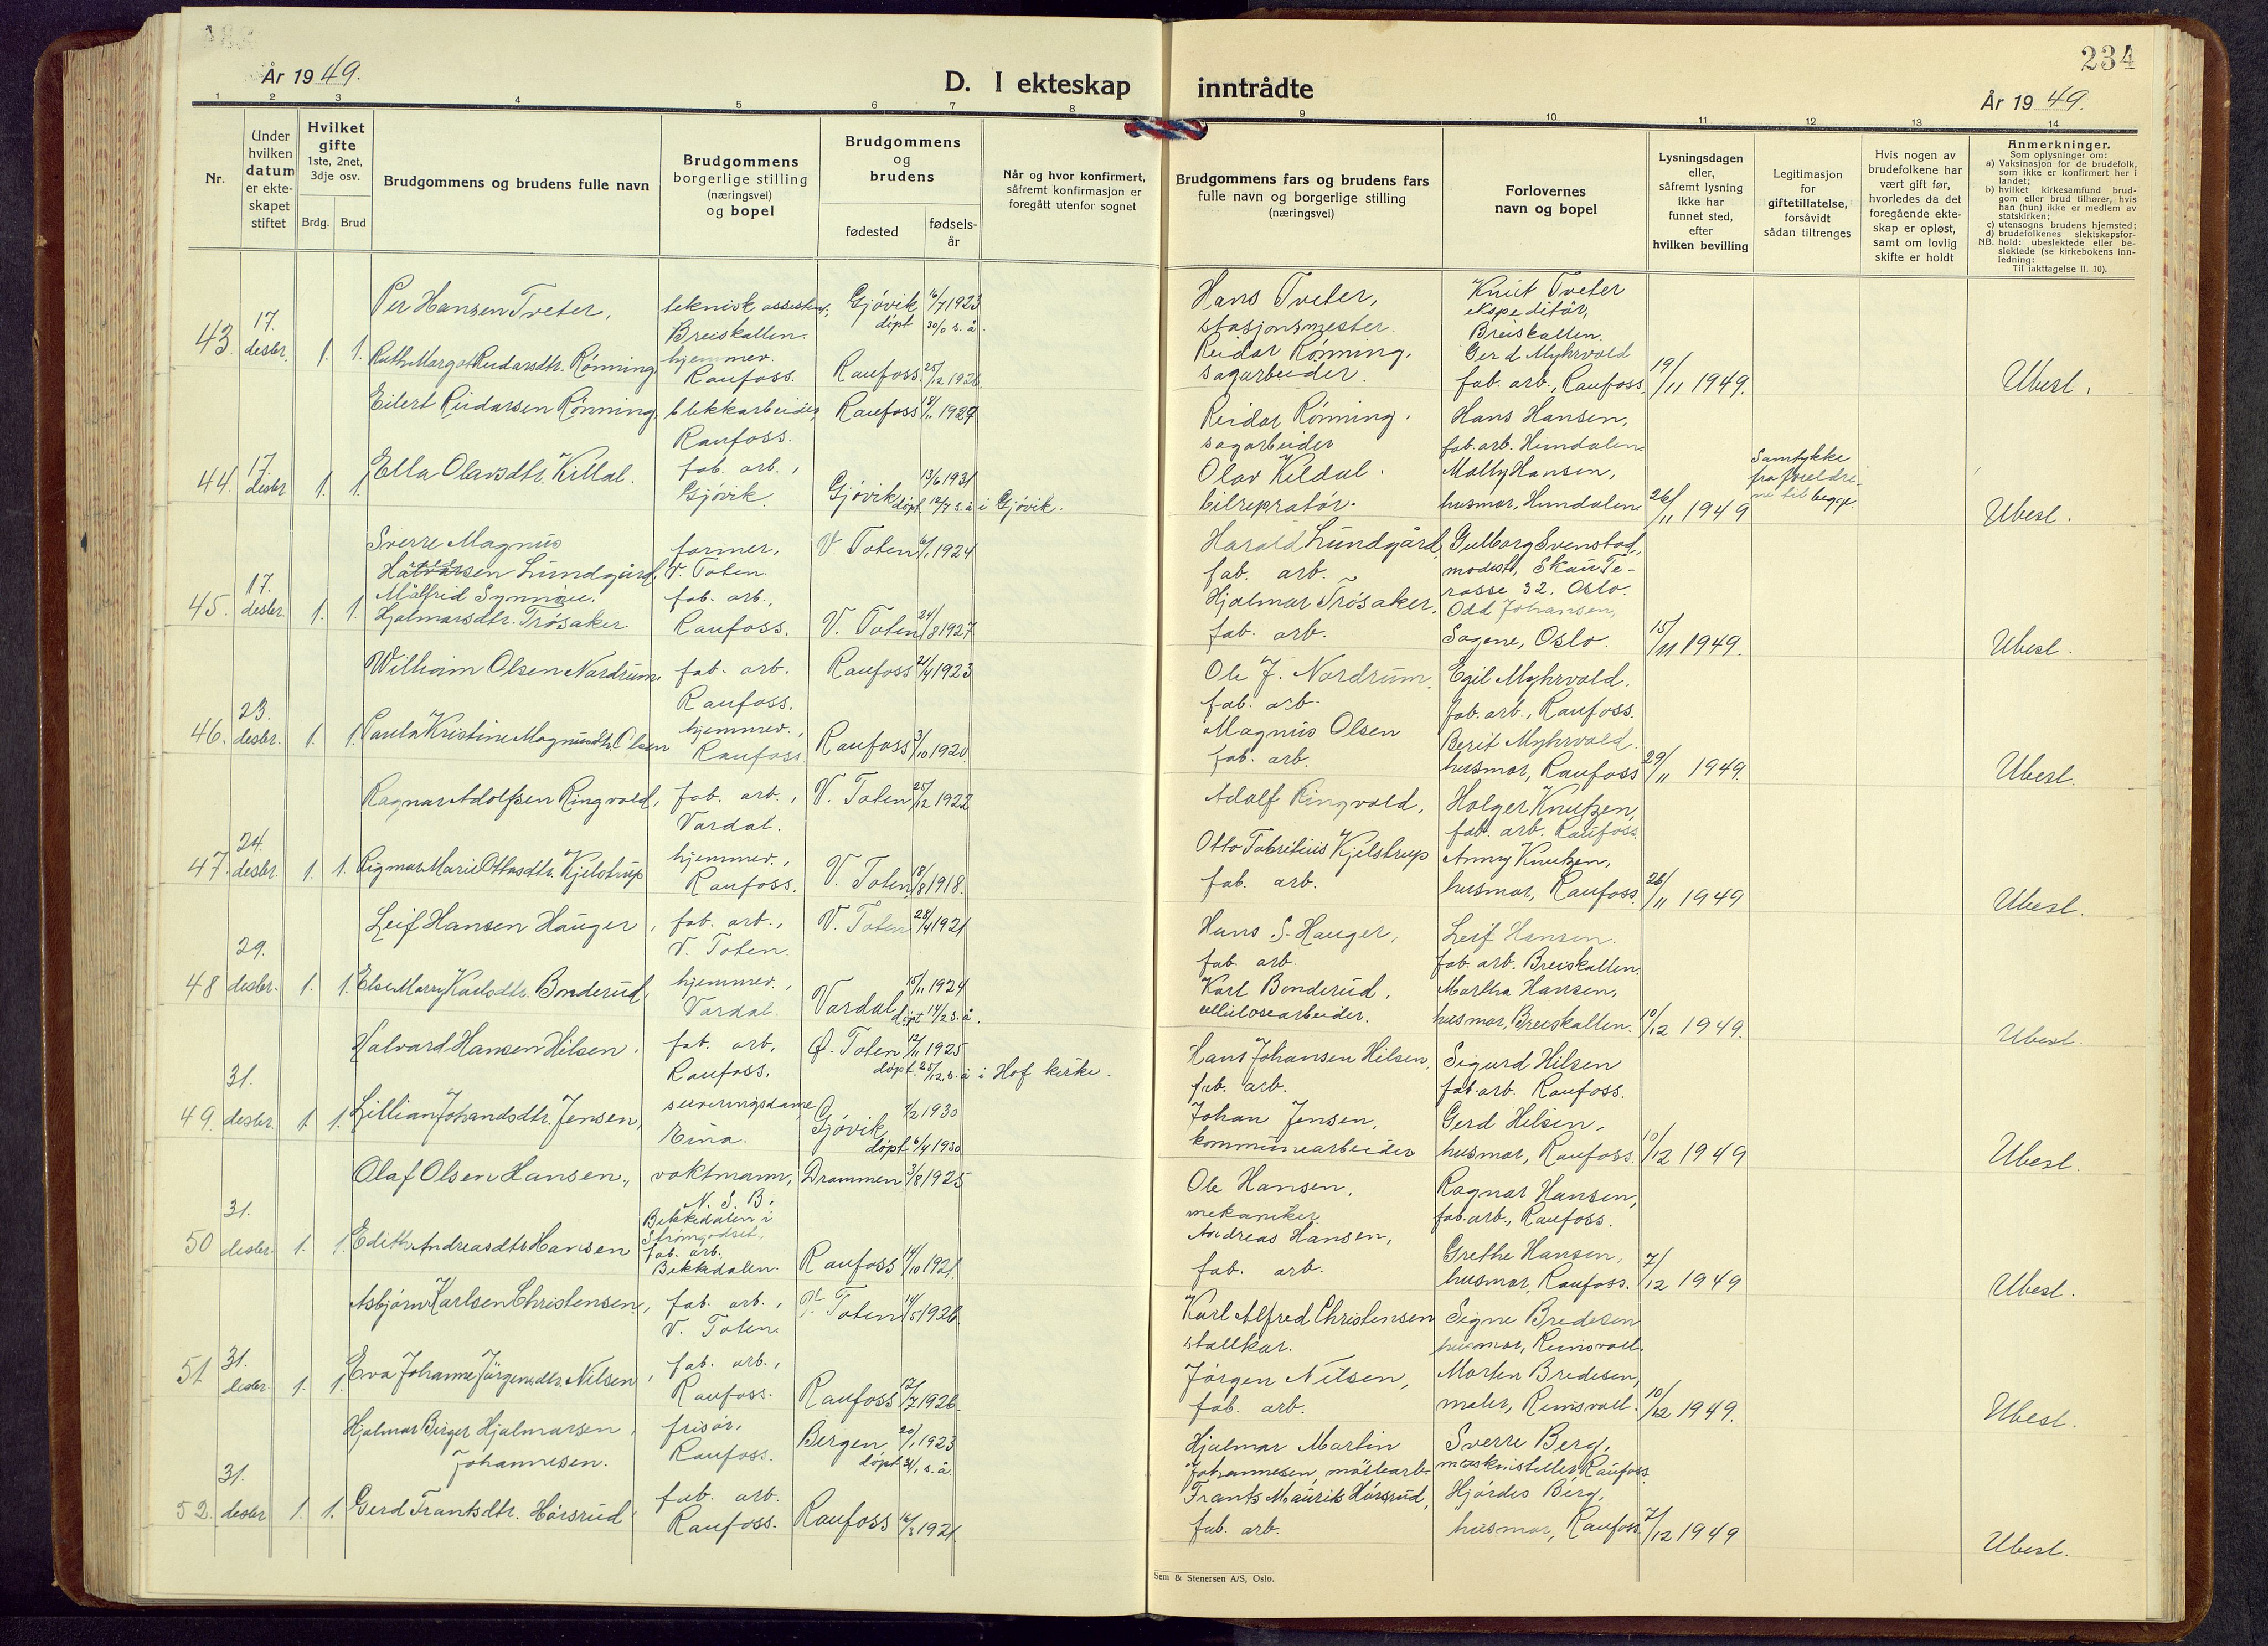 År 1949.
D. I ekteskap inntrådte
234
År 1949.
1 2 3 4 5 6 7 8 9 10 11 12 13 14
Nr.
Under hvilken datum er ekte-skapet stiftet
Hvilket gifte
1ste, 2net, 3dje osv.
Brdg. Brud
Brudgommens og brudens fulle navn
Brudgommens borgerlige stilling (næringsvei) og bopel
Brudgommens og brudens
fødested
fødsels-år
Når og hvor konfirmert, såfremt konfirmasjon er foregått utenfor sognet
Brudgommens fars og brudens fars fulle navn og borgerlige stilling (næringsvei)
Forlovernes navn og bopel
Lysningsdagen eller, såfremt lysning ikke har funnet sted, efter hvilken bevilling
Legitimasjon for giftetillatelse, forsåvidt sådan tiltrenges
Hvis nogen av brudefolkene har vært gift før, hvorledes da det foregående ekte-skap er opløst, samt om lovlig skifte er holdt
Anmerkninger.
Som oplysninger om:
a) Vaksinasjon for de brudefolk, som ikke er konfirmert her i landet;
b) hvilket kirkesamfund brud-gom eller brud tilhører, hvis han (hun) ikke er medlem av statskirken;
c) utensogns brudens hjemsted;
d) brudefolkenes slektskapsfor-
NB. hold: ubeslektede eller be-slektede (se kirkebokens inn-ledning:
Til iakttagelse II. 10).
43. 17. desbr. 1. 1.
Per Hansen Tveter, teknisk assistent, Breiskallen. Gjøvik 16/7 1923 døpt 30/ s. å.
Ruth Margot Reidarsdtr. Rønning hjemmev. Raufoss. Raufoss 25/12 1926
Hans Tveter, stasjonsmester.
Reidar Rønning, sagarbeider.
Knut Tveter ekspeditør, Breiskallen.
Gerd Myhrvold fab. arb., Raufoss.
19/11 1949.
Ubesl.
44. 17. desbr 1. 1.
Eilert Reidarsen Rønning, blikkarbeider, Raufoss. Raufoss 1927
Ella Olavsdtr. Kildal. fab. arb., Gjøvik. Gjøvik 13/6 1931 døpt 12/7 s. å i Gjøvik.
Reidar Rønning. sagarbeider
Olav Kildal. bilrepratør.
Hans Hansen, fab. arb. Hundalen
Molly Hansen, husmor, Hundalen
26/11 1949
Samtykke fra foreldre-ne til begge.
Ubesl.
45. 17. desbr. 1. 1.
Sverre Magnus Lundgård, former, V. Toten. V Toten 1924
Målfrid Synnøve Hjalmarsdtr. Trøsaker. fab. arb., Raufoss. V. Toten 24/8 1927
Harald Lundgård, fab. arb.
Hjalmar Trøsaker, fab. arb.
Gulborg Svenstad, modist, Skau Te-rasse 32. Oslo.
Odd Johansen, Sagene, Oslo.
15/11 1949.
Ubesl.
46. 23. desbr. 1. 1.
William Olsen Nordrum fab. arb. Raufoss. Raufoss 21/4 1923
Paula Kristine Magnusdtr. Olsen hjemmev., Raufoss Raufoss 3/10 1920
Ole J. Nordrum. fab. arb.
Magnus Olsen fab. arb.
Egil Myhrvold. fab. arb., Raufoss.
Berit Myhrvold. husmor, Raufoss
29/11 1949.
Ubesl.
47. 24. desbr. 1. 1.
Ragnar Adolfsen Ringvold, fab. arb., Vardal. V. Toten 25/12 1922
Sigmor Marie Ottosdtr. Kjelstrup hjemmev., Raufoss. V. Toten 18/8 1918.
Adolf Ringvold,
Otto Fabritius Kjelstrup fab. arb.
Holger Knutzen, fab. arb. Raufoss.
Anny Knutzen, husmor, Raufoss.
26/11 1949
Ubesl.
48 29. desbr. 1. 1.
Leif Hansen Hauger, fab. arb., V. Toten. V. Toten 28/4 1921
Else Marry Karlsdtr. Bonderud, hjemmev., Vardal. Vardal 15/11 1924 døpt 14/2 s. å.
Hans S. Hauger, fab. arb.
Karl Bonderud, cellulosearbeider.
Leif Hansen. fab. arb. Breiskallen.
Martha Hansen, husmor, Breiskallen.
10/12 1949.
Ubesl.
49. 31. desbr. 1. 1.
Halvard Hansen Hilsen. fab. arb, Raufoss. Ø. Toten 1925 døpt 25/12 s. å i Hof kirke.
Lillian Johandsdtr. Jensen, serveringsdame Eina. Gjøvik 7/2 1930 døpt 6/4 1930
Hans Johansen Hilsen, fab. arb.
Johan Jensen, kommunearbeider
Sigurd Hilsen fab arb. Raufoss.
Gerd Hilsen, husmor, Raufoss.
10/12 1949
Ubesl.
50 31. desbr. 1. 1.
Olaf Olsen Hansen, vaktmann, N. S. B. Bekkedalen i Strømgodset, Drammen 3/8 1925
Edith Andreasdtr Hansen fab. arb. Bekkedalen. Raufoss 14/10 1921.
Ole Hansen, mekaniker.
Andreas Hansen, fab. arb.
Ragnar Hansen, fab. arb., Raufoss.
Grethe Hansen, husmor, Raufoss.
7/12 1949
Ubesl.
51 31. desbr. 1. 1.
Asbjørn Karlsen Christensen, fab. arb., V. Toten. V. Toten 14/5 1926.
Eva Johanne Jørgensdtr. Nilsen, fab. arb., Raufoss. Raufoss 12/7 1926.
Karl Alfred Christensen stallkar.
Jørgen Nilsen, fab. arb.
Signe Bredesen husmor, Reinsvoll.
Morten Bredesen, maler, Reinsvoll.
10/12 1949.
Ubesl.
52. 31. desbr 1. 1.
Hjalmar Birger Hjalmarsen Johannesen. frisør, Raufoss. Bergen 20/1 1923 døpt 31/1 s. å.
Gerd Frantsdtr. Hørsrud fab. arb. Raufoss. Raufoss 16/3 1921.
Hjalmar Martin Johannesen, møllearb.
Frants Mauritz Hørsrud, fab. arb.
Sverre Berg, maskinstiller, Raufoss.
Hjørdis Berg, husmor, Raufoss
7/12 1949
Ubesl.
Sem & Stenersen A/S, Oslo.